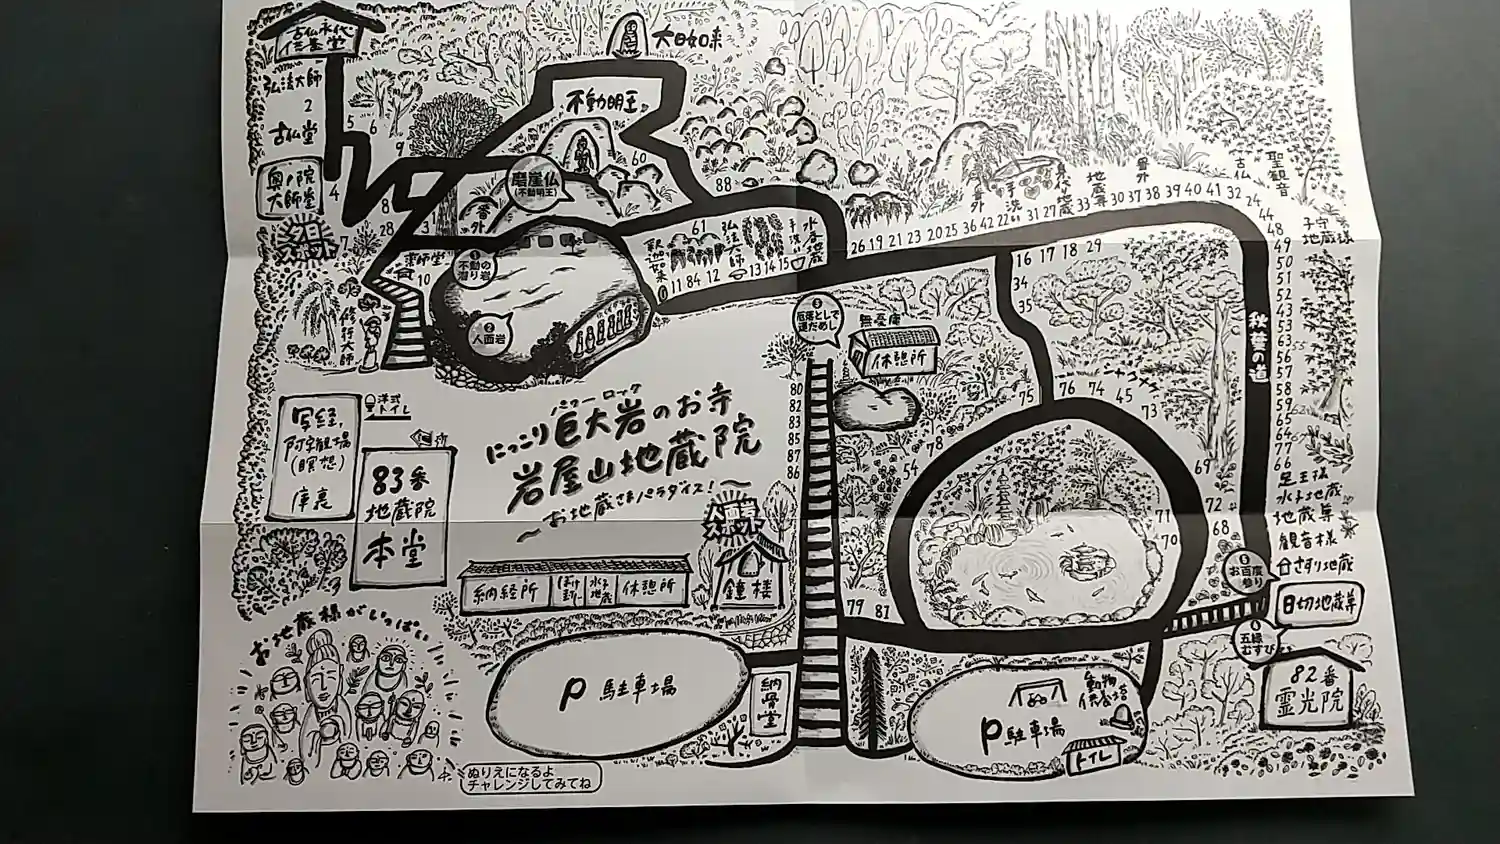 古仏永代
供養堂
弘法大師
2
古仏堂
奥ノ院
大師堂
5
6
9
4
8
7
28
3
1
大日如来
不動明王
60
88
磨崖仏
(不動明王)
番外
薬師堂
10
修行大師
① 不動の岩
② 人面岩
釈迦如来
61
11 84 12
弘法大師
13 14 15
手洗い
水子地蔵
26 19 21 23 20 25 36 42 22
番外
手洗い
31 27
身代地蔵
33
地蔵尊
30 37 38 39 40 41 32 24
番外
古仏
聖観音
44
48
49
50
51
52
43
53
63
55
56
57
58
59
62
65
64
77
66
子守
地蔵様
16 17 18 29
34
35
秋葉の道
③
厄落として
運だめし
無憂庵
休憩所
80
82
83
85
87
86
シャクナゲ
75
76
74
45
73
78
54
69
72
68
71
70
79 81
水子地蔵
地蔵尊
観音様
お百度
参り
日切地蔵尊
82番
霊光院
写経,
阿字観場
(瞑想)
庫裏
洋式
トイレ
83番
地蔵院
本堂
パワーロック
にっこり巨大岩のお寺
岩屋山地蔵院
〜お地蔵さまパラダイス!〜
納経所
水子
地蔵
休憩所
鐘楼
お地蔵様がいっぱい
P 駐車場
納骨堂
動物
供養塔
P 駐車場
トイレ
ぬりえになるよ
チャレンジしてみてね